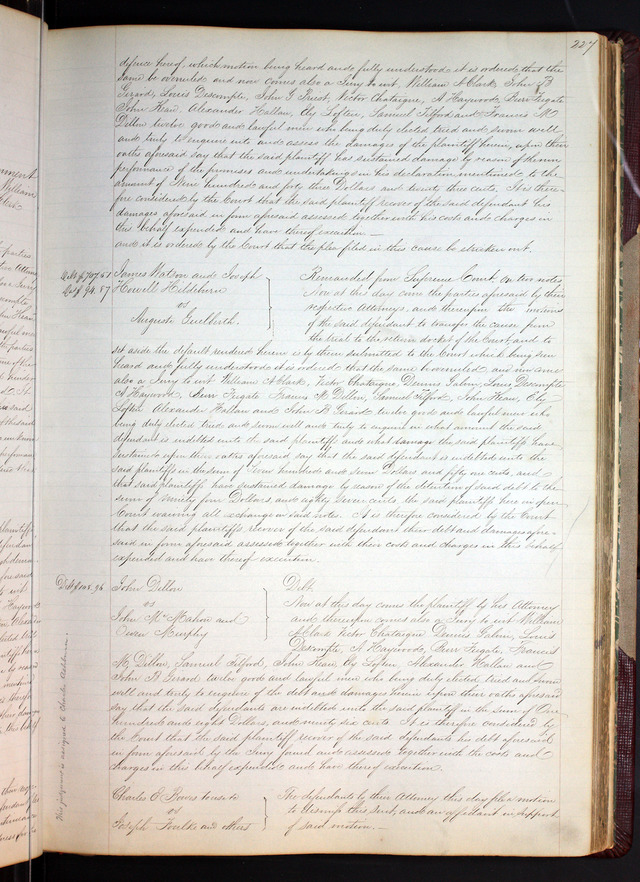 227
defence hereof, which motion being heard and fully understood it is ordered that the
same be overruled and now comes also a Jury to wit, William A Clark, John B
Gerard, Louis Descompte, John G Priest, Victor Chataigne, A Haywood, Peirr Feigate
John Hean, Alexander Hallam, Ely Loften, Samuel Tilford and Francis M
Dillon twelve good and lawful men who being duly elected tried and sworn well
and truly to enquire into and assess the damages of the plaintiff herein, upon their
oaths aforesaid say that the said plaintiff has sustained damage by reason of the non
performance of the promises and undertakings in his declaration mentioned to the
amount of Nine hundred and forty three Dollars and twenty three cents. It is there-
fore considered by the Court that the said plaintiff recover of the said defendant his
damages aforesaid in form aforesaid assessed together with his costs and charges in
this behalf expended and have thereof execution.—
and it is ordered by the Court that the plea filed in this cause be stricken out.
Debt $707.51
Dam $94.87
James Watson and Joseph
Howell Hildeburn
vs
Auguste Guelberth.
Remanded from Supreme Court. on two notes
Now at this day come the parties aforesaid by their
respective Attorneys, and thereupon the motions
of the said defendant to transfer the cause from
the trial to the return docket of the Court and to
set aside the default rendered herein is by them submitted to the Court which being seen
heard and fully understood it is ordered that the same be overruled and now come
also a Jury to wit William A Clark, Victor Chataigne Dennis Galvin, Louis Descompte
A Haywood, Peirr Feigate Francis M Dillon, Samuel Tilford, John Hean, Ely
Loften Alexander Hallam and John B Gerard twelve good and lawful men who
being duly elected tried and sworn well and truly to enquire in what amount the said
defendant is indebted unto the said plaintiffs and what damage the said plaintiffs have
sustained upon their oaths aforesaid say that the said defendant is indebted unto the
said plaintiffs in the sum of Seven hundred and seven Dollars and fifty one cents, and
that said plaintiffs have sustained damage by reason of the detention of said debt to the
sum of ninety four Dollars and eighty seven cents, the said plaintiffs here in open
Court waiving all exchange on said notes. It is therefore considered by the Court
that the said plaintiffs recover of the said defendant their debt and damages afore-
said in form aforesaid assessed together with their costs and charges in this behalf
expended and have thereof execution.
Debt $108.96
John Dillon
vs
John McMahon and
Owen Murphy
Debt.
Now at this day comes the plaintiff by his Attorney
and thereupon comes also a Jury to wit William
A Clark Victor Chataigne Dennis Galvin, Louis
Descompte, A Haywood, Peirr Feigate, Francis
M Dillon, Samuel Tilford, John Hean, Ely Loften, Alexander Hallam and
John B Gerard twelve good and lawful men who being duly elected, tried and sworn
well and truly to enquire of the debt and damages herein upon their oaths aforesaid
say that the said defendants are indebted unto the said plaintiff in the sum of One
hundred and eight Dollars, and ninety six cents. It is therefore considered by
the Court that the said plaintiff recover of the said defendants his debt aforesaid
in form aforesaid by the Jury found and assessed together with the costs and
charges in this behalf expended and have thereof execution.
This judgment is assigned to Charles
Charles C Bowers to use &c
vs
Joseph Foulke and others
The defendants by their Attorney this day files a motion
to dismiss this Suit, and an affidavit in support
of said motion.—